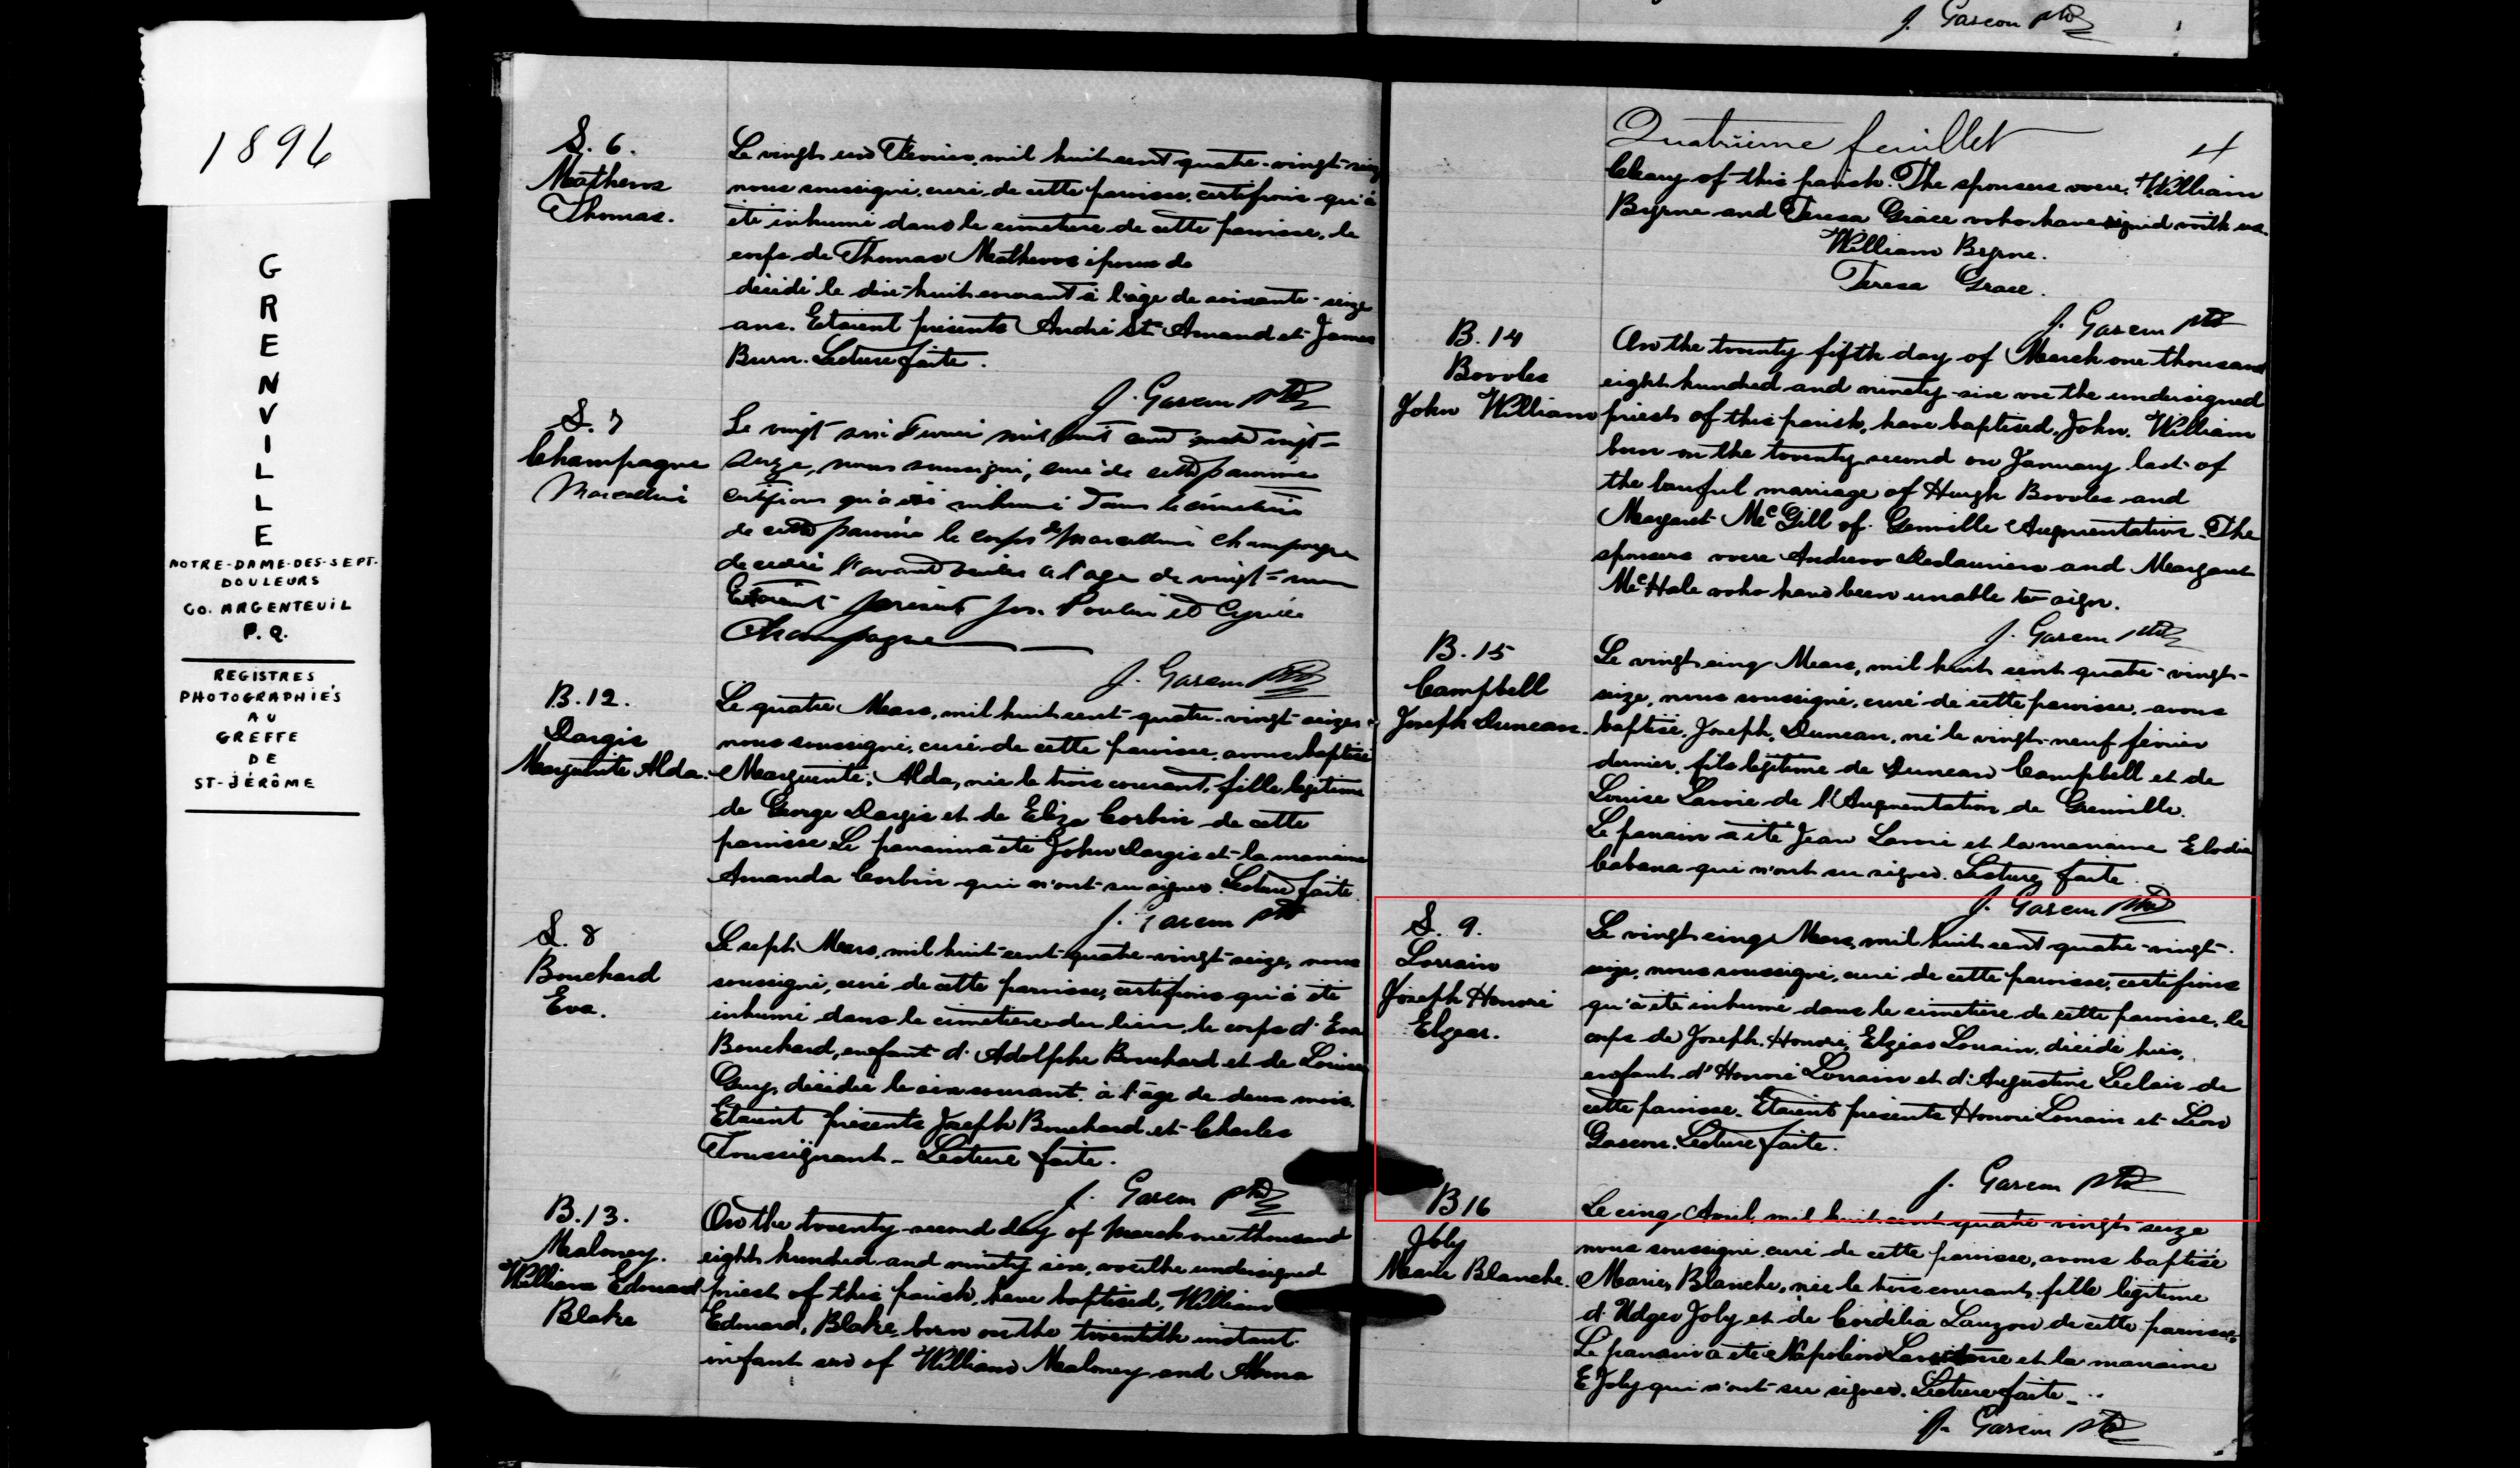 J. Gascon ptre
1896
GRENVILLE
NOTRE-DAME-DES-SEPT-
DOULEURS
CO. ARGENTEUIL
P.Q.
REGISTRES
PHOTOGRAPHIÉS
AU
GREFFE
DE
ST-JÉRÔME
S. 6.
Mathews
Thomas.
Le vingt un Février, mil huit cent quatre-vingt-seize
nous soussigné, curé de cette paroisse, certifions qu'à
été inhumé dans le cimetière de cette paroisse, le
corps de Thomas Mathews époux de
décédé le dix-huit courant à l'âge de soixante-seize
ans. Etaient présents André St-Amand et James
Burn. Lecture faite.
J. Gascon ptre
S. 7
Champagne
Marcelline
Le vingt six Fevrier mil huit cent quatre vingt-
seize, nous soussigné, curé de cette paroisse
certifions qu'à été inhumé dans le cimetière
de cette paroisse le corps de Marcelline Champagne
decedée l'avant veille a l'age de vingt-un
Etaient présent Jos. Poulin et Cyrille
Champagne
J. Gascon ptre
B. 12.
Dargis
Marguerite Alda.
Le quatre Mars, mil huit cent-quatre-vingt-seize
nous soussigné, curé de cette paroisse, avons baptisé
Marguerite, Alda, née le trois courant, fille légitime
de George Dargis et de Eliza Corbin de cette
paroisse Le parrain a été John Dargis et la marraine
Amanda Corbin qui n'ont su signer. Lecture faite.
J. Gascon ptre
S. 8
Bouchard
Eva.
Le sept Mars, mil huit-cent-quatre-vingt-seize, nous
soussigné, curé de cette paroisse, certifions qu'à été
inhumé dans le cimetière du lieu, le corps d'Eva
Bouchard, enfant d'Adolphe Bouchard et de Louise
Guy, décédée le six courant à l'âge de deux mois.
Etaient présents Joseph Bouchard et Charles
Toussignant - Lecture faite.
J. Gascon ptre
B. 13.
Maloney.
William Edward
Blake
On the twenty second day of March one thousand
eight hundred and ninety six, we the undersigned
priest of this parish, have baptised, William
Edward, Blake, born on the twentieth instant
infant son of William Maloney and Anna
Quatrième feuillet
4
Cleary of this parish. The sponsers were William
Byrne and Teresa Grace who have signed with us.
William Byrne.
Teresa Grace.
J. Gascon ptre
B. 14
Bowles
John William
On the twenty fifth day of March one thousand
eight hundred and ninety-six we the undersigned
priest of this parish, have baptised, John, William
born on the twenty second on January last of
the lawful marriage of Hugh Bowles and
Margaret McGill of Grenville Augmentation. The
sponsers were Andrew Deslauriers and Margaret
McHale who have been unable to sign.
J. Gascon ptre
B. 15
Campbell
Joseph Duncan.
Le vingt cinq Mars, mil huit cent quatre-vingt-
seize, nous soussigné, curé de cette paroisse, avons
baptisé, Joseph, Duncan, né le vingt-neuf février
dernier, fils légitime de Duncan Campbell et de
Louise Lavoie de l'Augmentation de Grenville.
Le parrain a été Jean Lavoie et la marraine Elodia
Cabana qui n'ont su signer. Lecture faite.
J. Gascon ptre
S. 9.
Lorrain
Joseph Honoré
Elzéar.
Le vingt cinq Mars, mil huit cent quatre-vingt-
seize, nous soussigné, curé de cette paroisse, certifions
qu'à été inhumé dans le cimetière de cette paroisse, le
corps de Joseph, Honoré, Elzéar Lorrain, décédé hier,
enfant d'Honoré Lorrain et d'Augustine Leclair de
cette paroisse. Etaient présents Honoré Lorrain et Léon
Gascon. Lecture faite.
J. Gascon ptre
B 16
Joly
Marie Blanche.
Le cinq Avril, mil huit cent quatre-vingt-seize
nous soussigné, curé de cette paroisse, avons baptisé
Marie, Blanche, née le trois courant, fille légitime
d'Udger Joly et de Cordélia Lauzon de cette paroisse.
Le parrain a été Napoléon et la marraine
E Joly qui n'ont su signer. Lecture faite -
J. Gascon ptre